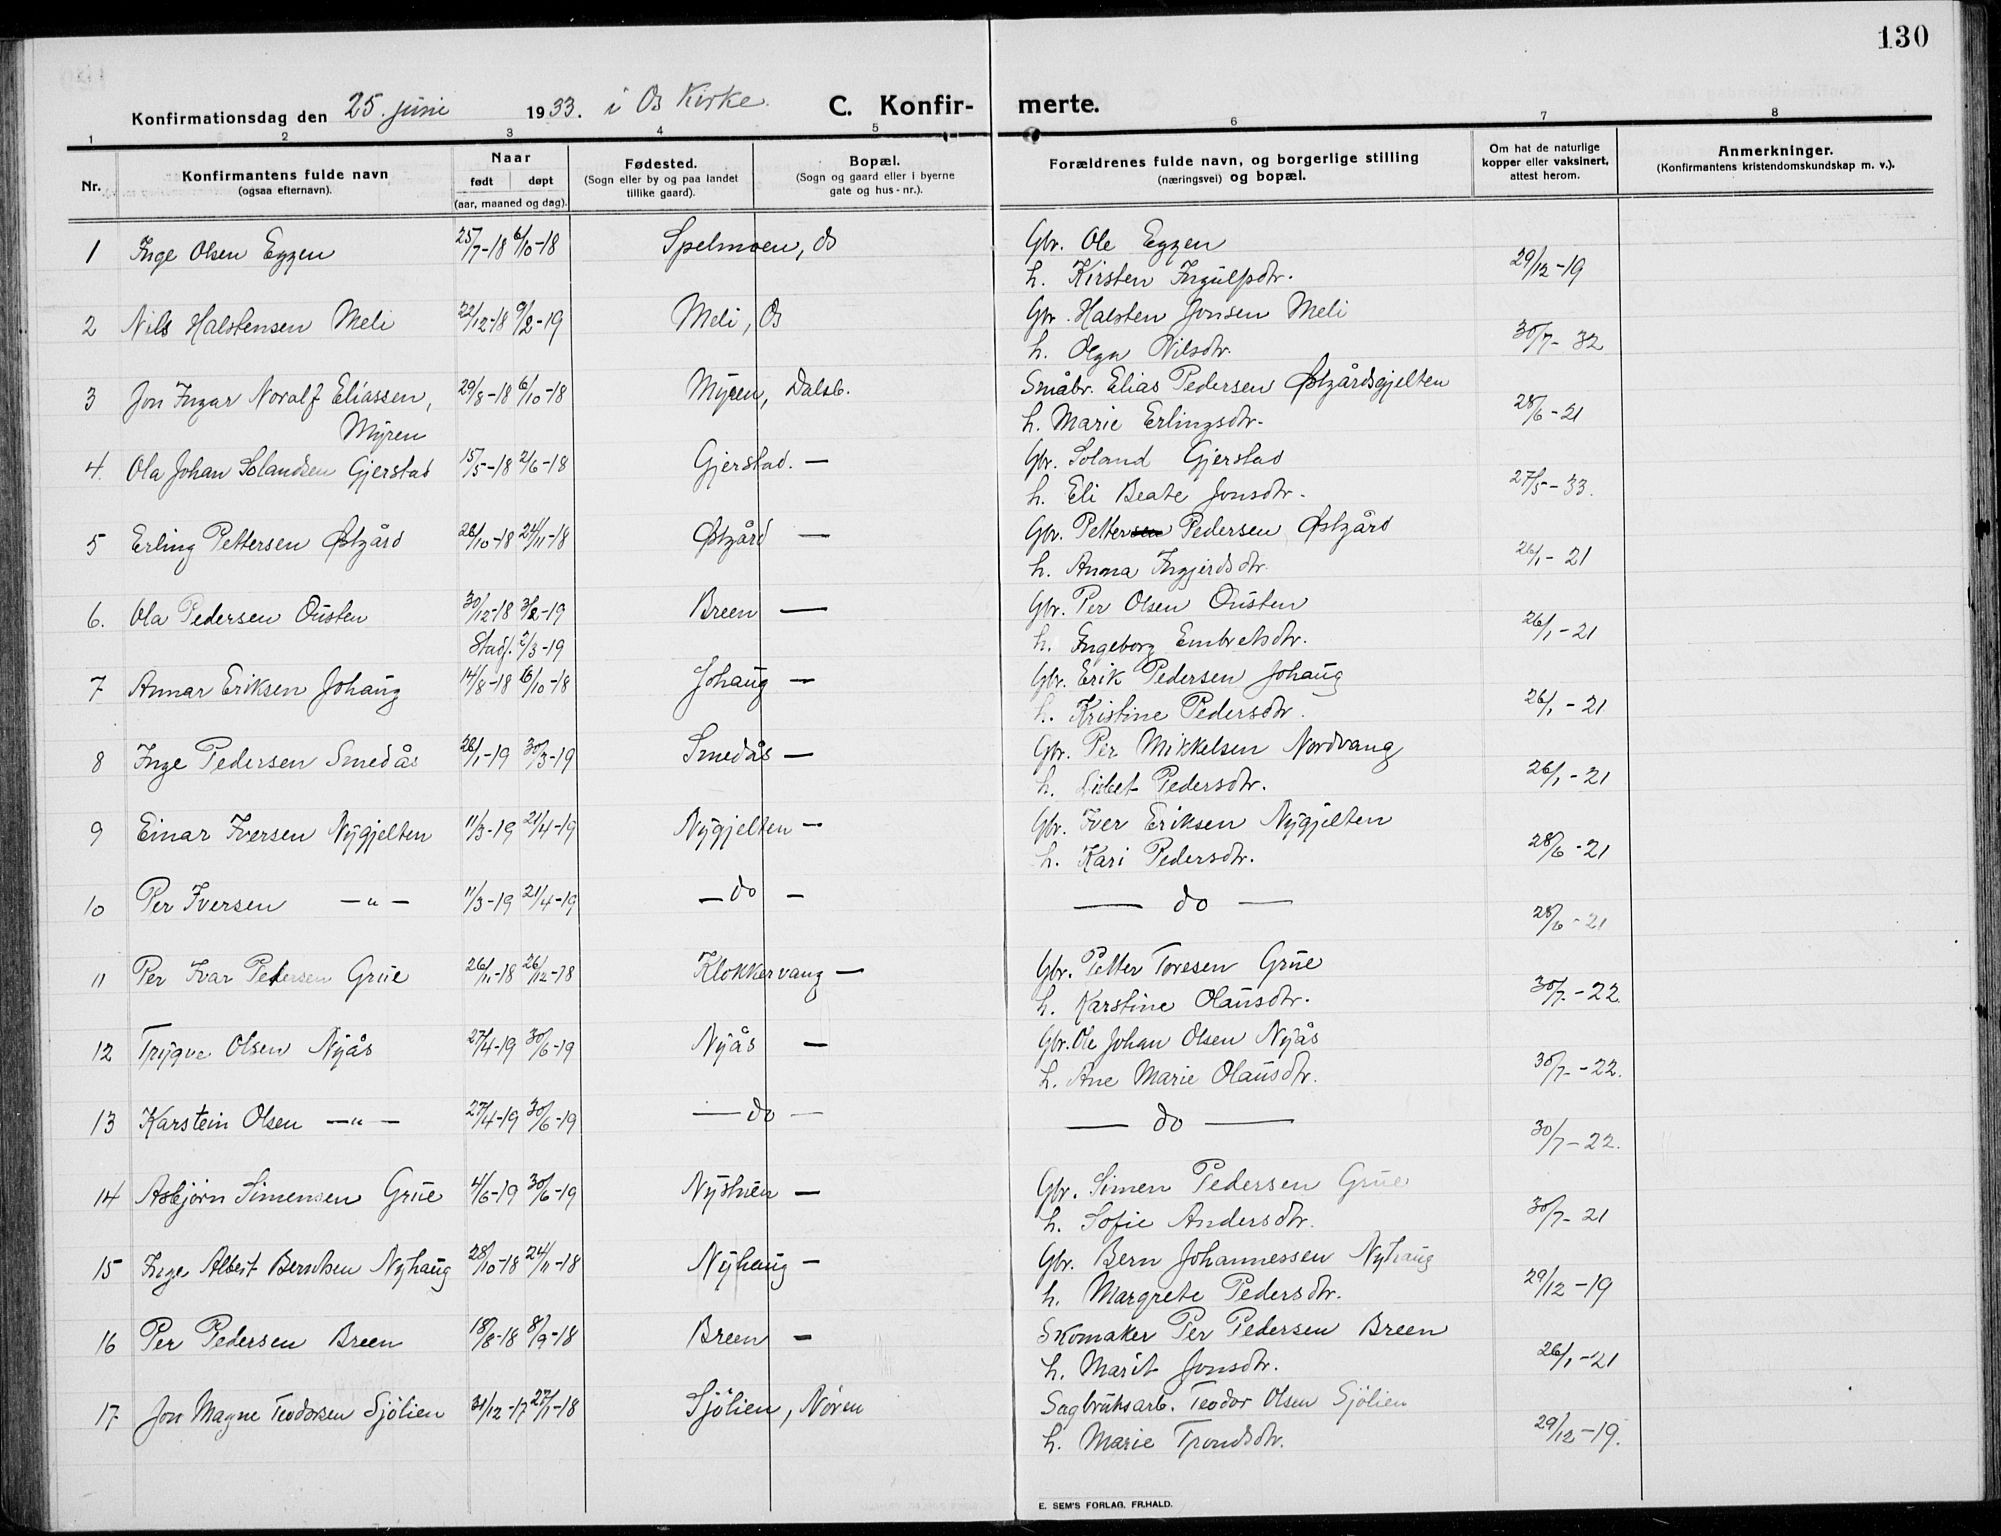 130
Konfirmationsdag den 25. juni 1933. i Os Kirke. C. Konfirmerte.
1 2 3 4 5 6 7 8
Nr.
Konfirmantens fulde navn
(ogsaa efternavn).
Naar
født døpt
(aar, maaned og dag).
Fødested.
(Sogn eller by og paa landet
tillike gaard).
Bopæl.
(Sogn og gaard eller i byerne
gate og hus-nr.).
Forældrenes fulde navn, og borgerlige stilling
(næringsvei) og bopæl.
Om hat de naturlige
kopper eller vaksinert,
attest herom.
Anmerkninger.
(Konfirmantens kristendomskundskap m. v.).
1 Inge Olsen Eggen 25/7-18 6/10-18 Spelmoen, Os Gbr. Ole Eggen
h. Kirsten Ingulfsdtr. 29/12-19
2 Nils Halstensen Meli 22/12-18 9/2-19 Meli, Os Gbr. Halsten Jonsen Meli
h. Olga Nilsdtr. 30/7-32
3 Jon Ingar Noralf Eliassen, 29/8-18 6/10-18 Myren, Dalsb. Småbr. Elias Pedersen Østgårdsgjelten
Myren h. Marie Erlingsdtr. 28/6-21
4. Ola Johan Solandsen Gjerstad 15/5-18 2/6-18 Gjerstad. — Gbr. Soland Gjerstad
h. Eli Beate Jonsdtr. 27/5-33.
5 Erling Pettersen Østgård 26/10-18 24/11-18 Østgård — Gbr. Pettersen Pedersen Østgård
h. Anna Ingjerdsdtr. 26/1-21
6. Ola Pedersen Ousten 30/12-18 3/2-19 Breen — Gbr. Per Olsen Ousten
Stadf. 2/3-19 h. Ingeborg Embretsdtr. 26/1-21
7 Annar Eriksen Johaug 14/8-18 6/10-18 Johaug — Gbr. Erik Pedersen Johaug
h. Kristine Pedersdtr. 26/1-21
8 Inge Pedersen Smedås 26/1-19 30/3-19 Smedås — Gbr. Per Mikkelsen Nordvang
h. Lisbet Pedersdtr. 26/1-21
9 Einar Iversen Nygjelten 11/3-19 21/4-19 Nygjelten — Gbr. Iver Eriksen Nygjelten
h. Kari Pedersdtr. 28/6-21
10 Per Iversen —"— 11/3-19 21/4-19 — do — — do —
28/6-21
11 Per Ivar Petersen Grue 26/11-18 26/12-18 Klokkervang — Gbr. Petter Toresen Grue
h. Karstine Olausdtr. 30/7-22.
12 Trygve Olsen Nyås 27/4-19 30/6-19 Nyås — Gbr. Ole Johan Olsen Nyås
h. Ane Marie Olausdtr. 30/7-22.
13 Karstein Olsen —"— 27/4-19 30/6-19 — do — — do —
30/7-22.
14 Asbjørn Simensen Grue 4/6-19 30/6-19 Nystuen — Gbr. Simen Pedersen Grue
h. Sofie Andersdtr. 30/7-21
15 Inge Albert Berntsen Nyhaug 28/10-18 24/11-18 Nyhaug — Gbr. Bern Johannessen Nyhaug
h. Margrete Pedersdtr. 29/12-19
16 Per Pedersen Breen 18/8-18 8/9-18 Breen — Skomaker Per Pedersen Breen
h. Marit Jonsdtr. 26/1-21
17 Jon Magne Teodorsen Sjölien 31/12-17 27/1-18 Sjölien, Nören Sagbruksarb. Teodor Olsen Sjölien
h. Marie Trondsdtr. 29/12-19.
E. SEM'S FORLAG, FR.HALD.